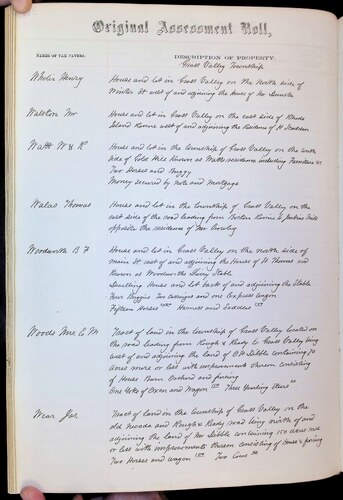 Original Assessment Roll,
NAMES OF TAX PAYERS.
DESCRIPTION OF PROPERTY.
Grass Valley Township
Wholer Henry
House and lot in Grass Valley on the North side of
Winter St west of and adjoining the house of Mr
Walston Mr
House and lot in Grass Valley on the east side of Rhode
Island Ravine west of and adjoining the Residence of
Watt W & R
House and lot in Grass Valley on the south
side of Gold Hill Known as Watts residence including Furniture &c
Two Horses and Buggy
Money secured by note and Mortgage
Thomas
House and lot in the Township of Grass Valley on the
east side of the road leading from Boston Ravine to
opposite the residence of Mr Crowley
Woodworth B F
House and lot in Grass Valley on the north side of
main St east of and adjoining the House of H Thomas and
Known as Woodworths Livery Stable
Dwelling House and lot back of and adjoining the Stable
Four Buggies Two carriages and one Express wagon
Fifteen Horses Harness and Saddles
Woods Mr C M
Tract of land in the township of Grass Valley located on
the road leading from Rough & Ready to Grass Valley being
west of and adjoining the land of O P Sibble containing 70
acres more or less with improvements thereon consisting
of House Barn Orchard and fencing
One Yoke of Oxen and Wagon Three Yearling Steers
Wear Jas
Tract of land in the township of Grass Valley on the
old Nevada and Rough & Ready road being north of and
adjoining the land of Mr Sibble containing 150 acres more
or less with improvements thereon consisting of house & fencing
Two Horses and wagon Two Cows